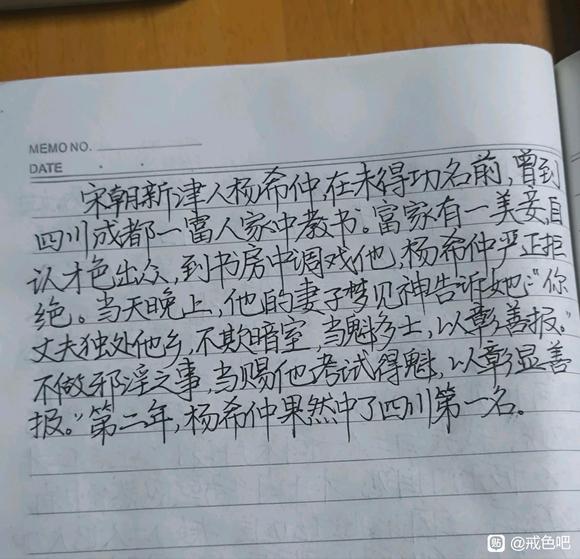 MEMO NO.
DATE
宋朝新津人杨希仲,在未得功名前,曾到
四川成都一富人家中教书。富家有一美妾,自
认才色出众,到书房中调戏他,杨希仲严正拒
绝。当天晚上,他的妻子梦见神告诉她:“你
丈夫独处他乡,不欺暗室,当魁多士,以彰善报。”
不做邪淫之事,当赐他考试得魁,以彰显善
报。”第二年,杨希仲果然中了四川第一名。
贴 @戒色吧